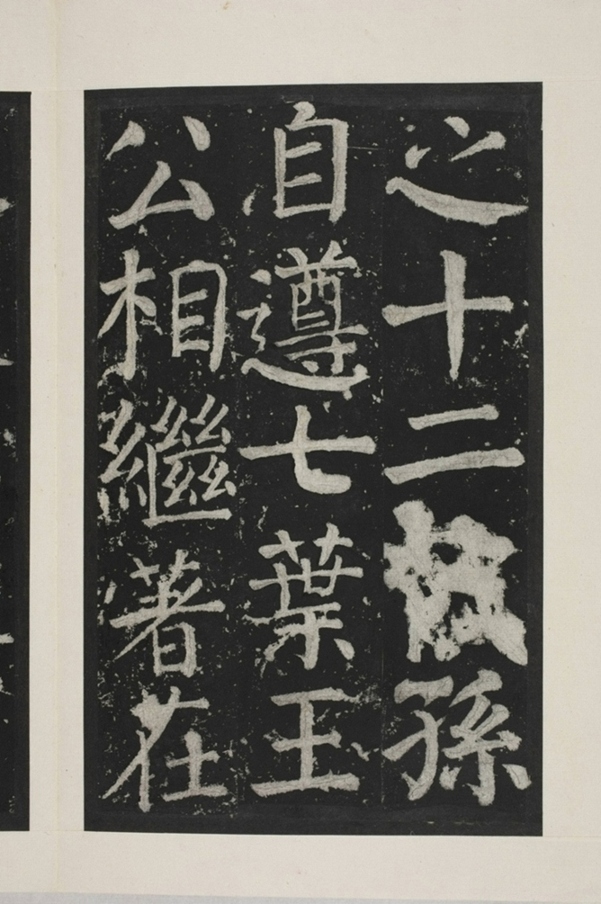 之十二孫
自遵七葉王
公相繼著在